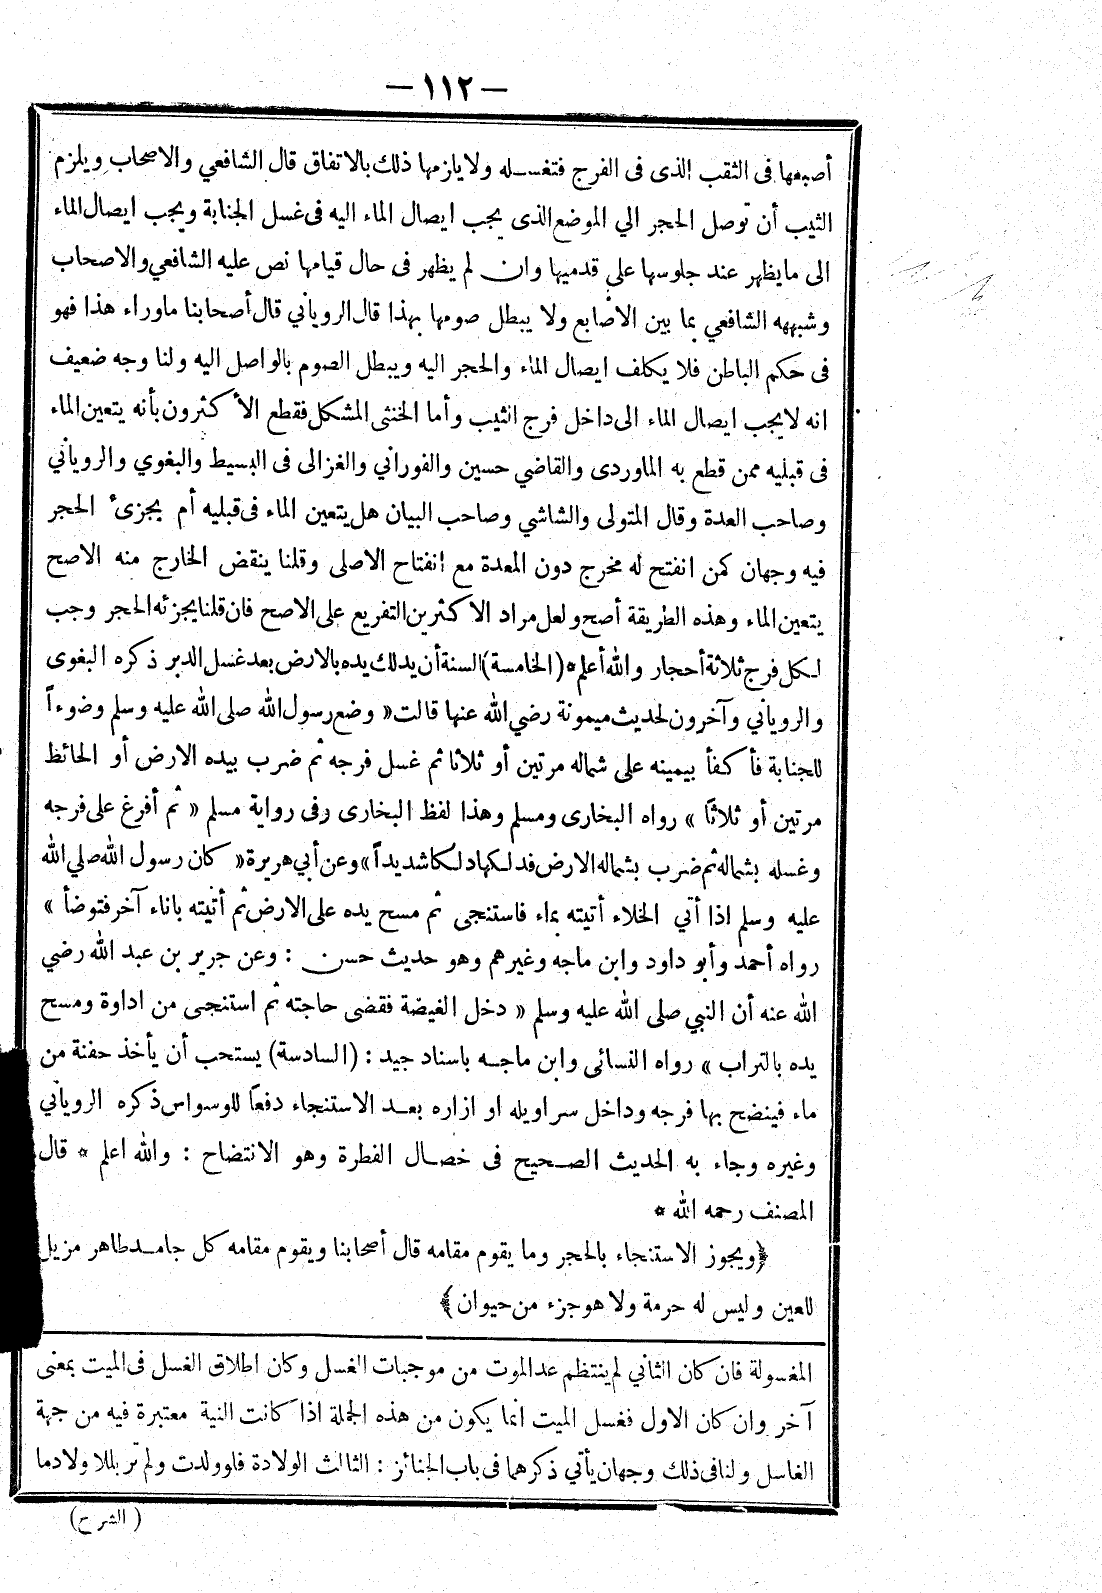 — ١١٢ —
أصبعها فى الثقب الذى فى الفرج فتغسله ولا يلزمها ذلك بالاتفاق قال الشافعي والاصحاب ويلزم
الثيب أن توصل الحجر الي الموضع الذى يجب ايصال الماء اليه فى غسل الجنابة ويجب ايصال الماء
الى ما يظهر عند جلوسها علي قدميها وان لم يظهر فى حال قيامها نص عليه الشافعي والاصحاب
وشبهه الشافعي بما بين الاصابع ولا يبطل صومها بهذا قال الروياني قال أصحابنا ما وراء هذا فهو
فى حكم الباطن فلا يكلف ايصال الماء والحجر اليه ويبطل الصوم بالواصل اليه ولنا وجه ضعيف
انه لا يجب ايصال الماء الى داخل فرج الثيب وأما الخنثى المشكل فقطع الأكثرون بأنه يتعين الماء
فى قبليه ممن قطع به الماوردى والقاضي حسين والفوراني والغزالى فى البسيط والبغوي والروياني
وصاحب العدة وقال المتولى والشاشي وصاحب البيان هل يتعين الماء فى قبليه أم يجزئ الحجر
فيه وجهان كمن انفتح له مخرج دون المعدة مع انفتاح الاصلى وقلنا ينقض الخارج منه الاصح
يتعين الماء وهذه الطريقة أصح ولعل مراد الاكثرين التفريع على الاصح فان قلنا يجزئه الحجر وجب
لكل فرج ثلاثة أحجار والله أعلم * (الخامسة) السنة أن يدلك يده بالارض بعد غسل الدبر ذكره البغوى
والروياني وآخرون لحديث ميمونة رضي الله عنها قالت « وضع رسول الله صلى الله عليه وسلم وضوءاً
للجنابة فأكفأ بيمينه علي شماله مرتين أو ثلاثا ثم غسل فرجه ثم ضرب بيده الارض أو الحائط
مرتين أو ثلاثًا » رواه البخارى ومسلم وهذا لفظ البخارى وفى رواية مسلم « ثم أفرغ على فرجه
وغسله بشماله ثم ضرب بشماله الارض فدلكها دلكا شديداً » وعن أبي هريرة « كان رسول الله صلي الله
عليه وسلم اذا أتي الخلاء أتيته بماء فاستنجى ثم مسح يده على الارض ثم أتيته باناء آخر فتوضأ »
رواه أحمد وأبو داود وابن ماجه وغيرهم وهو حديث حسن : وعن جرير بن عبد الله رضي
الله عنه أن النبي صلى الله عليه وسلم « دخل الغيضة فقضى حاجته ثم استنجى من اداوة ومسح
يده بالتراب » رواه النسائى وابن ماجه باسناد جيد : (السادسة) يستحب أن يأخذ حفنة من
ماء فينضح بها فرجه وداخل سراويله او ازاره بعد الاستنجاء دفعاً للوسواس ذكره الروياني
وغيره وجاء به الحديث الصحيح فى خصال الفطرة وهو الانتضاح : والله اعلم * قال
المصنف رحمه الله *
﴿ويجوز الاستنجاء بالحجر وما يقوم مقامه قال أصحابنا ويقوم مقامه كل جامد طاهر مزيل
للعين وليس له حرمة ولا هو جزء من حيوان﴾
المغسولة فان كان الثاني لم ينتظم عد الموت من موجبات الغسل وكان اطلاق الغسل فى الميت بمعنى
آخر وان كان الاول فغسل الميت انما يكون من هذه الجملة اذا كانت النية معتبرة فيه من جهة
الغاسل ولنا فى ذلك وجهان يأتي ذكرهما فى باب الجنائز : الثالث الولادة فلو ولدت ولم تر بللا ولا دما
( الشرح)